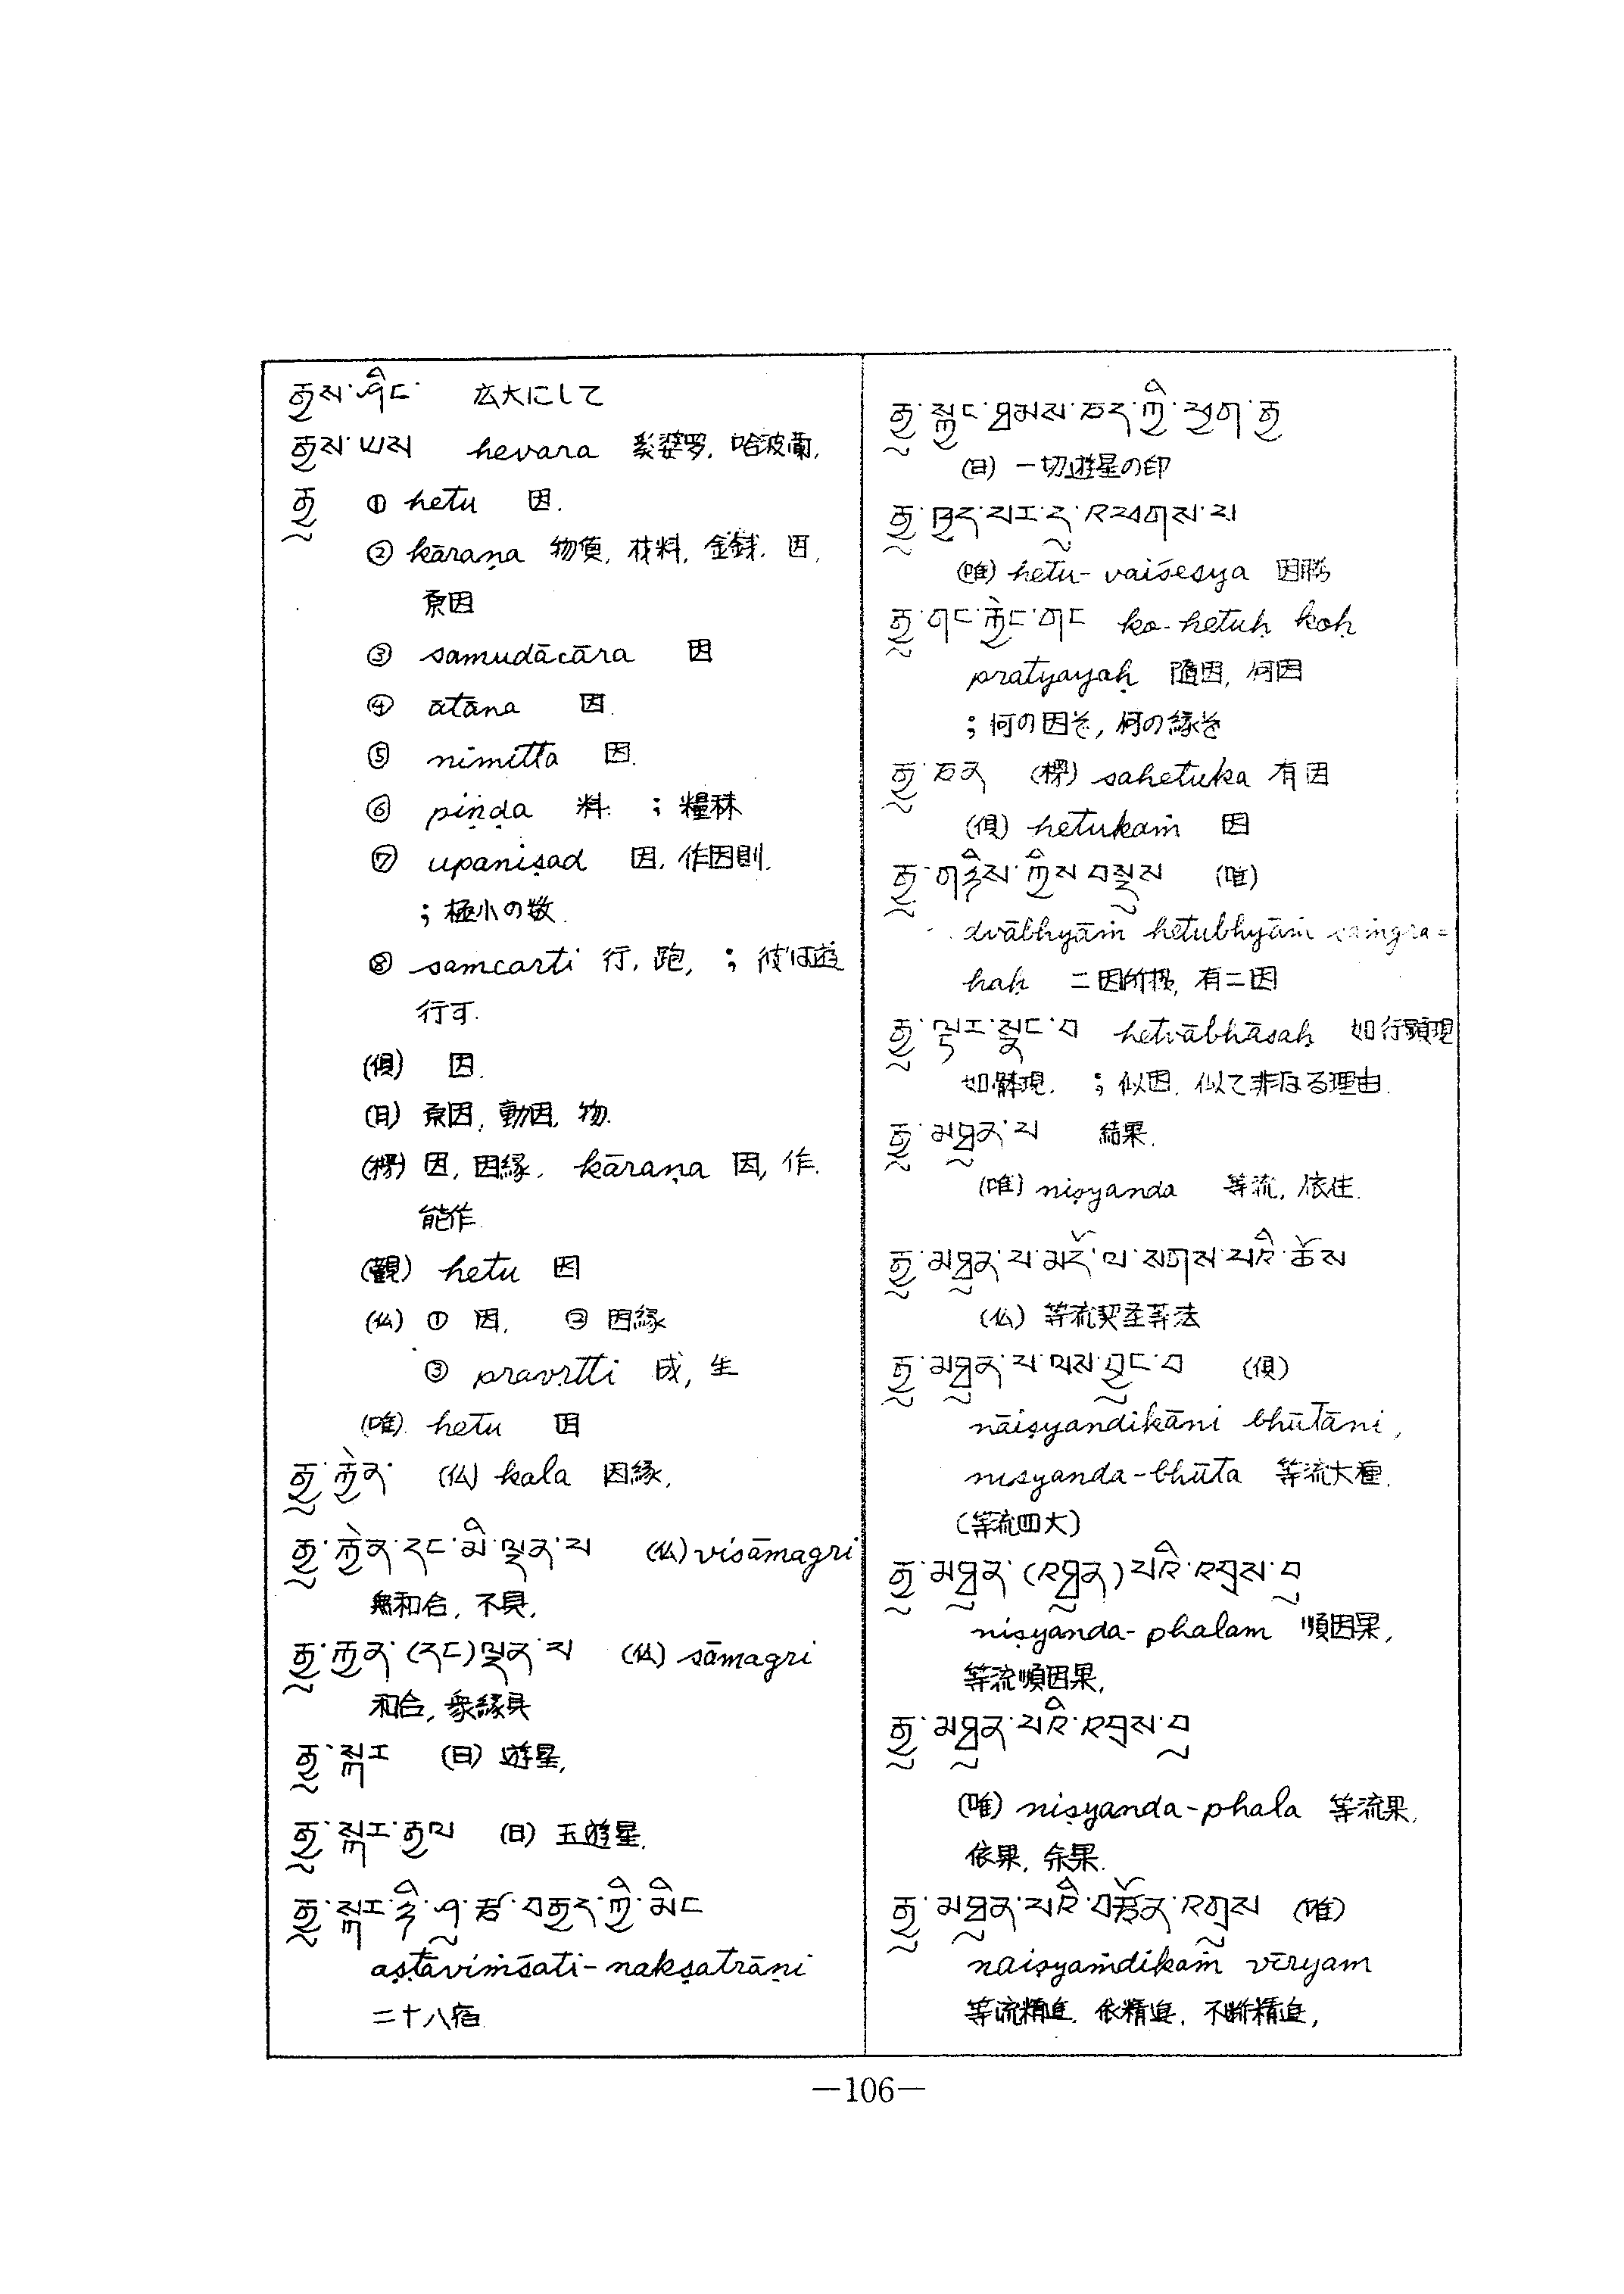 རྒྱས་ཤིང་ 広大にして
རྒྱས་ཡས hevara 奚婆罗, 哈波蘭,
རྒྱུ ① hetu 因.
② kāraṇa 物貭, 材料, 金銭. 因,
原因
③ samudācāra 因
④ ātāna 因.
⑤ nimitta 因.
⑥ piṇḍa 料. ; 糧秣
⑦ upaniṣad 因, 作因則.
; 極小の数.
⑧ samcarti 行, 跑, ; 彼は遊
行す.
(倶) 因.
(日) 原因, 動因, 物.
(楞) 因, 因縁. kāraṇa 因, 作.
能作.
(観) hetu 因
(仏) ① 因, ② 因縁
③ pravṛtti 成, 生
(唯) hetu 因
རྒྱུ་རྐྱེན་ (仏) kala 因縁,
རྒྱུ་རྐྱེན་དང་མི་ལྡན་པ (仏) visāmagri
無和合, 不具,
རྒྱུ་རྐྱེན་(དང)ལྡན་པ (仏) sāmagri
和合, 衆縁具
རྒྱུ་སྐར (日) 遊星,
རྒྱུ་སྐར་རྒྱལ (日) 玉遊星.
རྒྱུ་སྐར་ཉི་ཤུ་རྩ་བརྒྱད་ཀྱི་མིང
aṣṭāviṁśati-nakṣatrāṇi
二十八宿.
རྒྱུ་སྐྱང་ཐམས་ཅད་ཀྱི་ཕྱག་རྒྱ
(日) 一切遊星の印
རྒྱུ་ཁྱད་པར་དུ་འཕགས་པ
(唯) hetu-vaiśeṣya 因勝
རྒྱུ་གང་རྐྱེང་གང ko-hetuḥ koḥ
pratyayaḥ 随因, 何因
; 何の因ぞ, 何の縁ぞ
རྒྱུ་ཅན (楞) sahetuka 有因
(倶) hetukaṁ 因
རྒྱུ་གཉིས་ཀྱིས་བསྡུས (唯)
dvābhyāṁ hetubhyāṁ saṁgra=
haḥ 二因所摂, 有二因
རྒྱུ་ལྟར་སྣང་བ hetvābhāsaḥ 如行顕現
如躰現. ; 似因, 似て非なる理由.
རྒྱུ་མཐུན་པ 結果.
(唯) niṣyanda 等流, 依住.
རྒྱུ་མཐུན་པ་མདོ་ལ་སགས་པའི་ཆོས
(仏) 等流契圣等法
རྒྱུ་མཐུན་པ་ལས་བྱུང་བ (倶)
nāiṣyandikāni bhūtāni,
nisyanda-bhūta 等流大種.
(等流四大)
རྒྱུ་མཐུན་(འཐུན)པའི་འབྲས་བུ
niṣyanda-phalam 順因果,
等流順因果,
རྒྱུ་མཐུན་པའི་འབྲས་བུ
(唯) niṣyanda-phala 等流果,
依果, 余果.
རྒྱུ་མཐུན་པའི་བརྩོན་འགྲུས (唯)
naiṣyaṁdikaṁ vīryam
等流精進. 依精進. 不断精進,
—106—